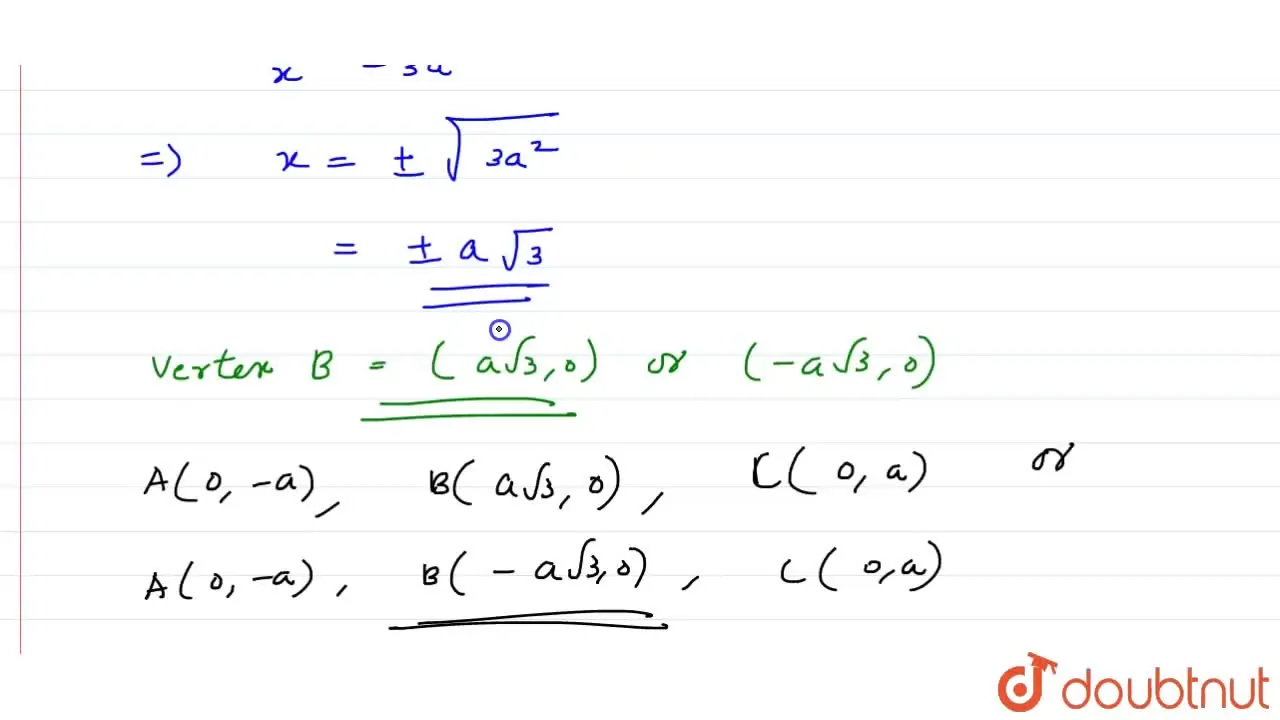 => x = ± √3a²
= ± a√3
Vertex B = (a√3, 0) or (-a√3, 0)
A(0, -a), B(a√3, 0), C(0, a) or
A(0, -a), B(-a√3, 0), C(0, a)
doubtnut